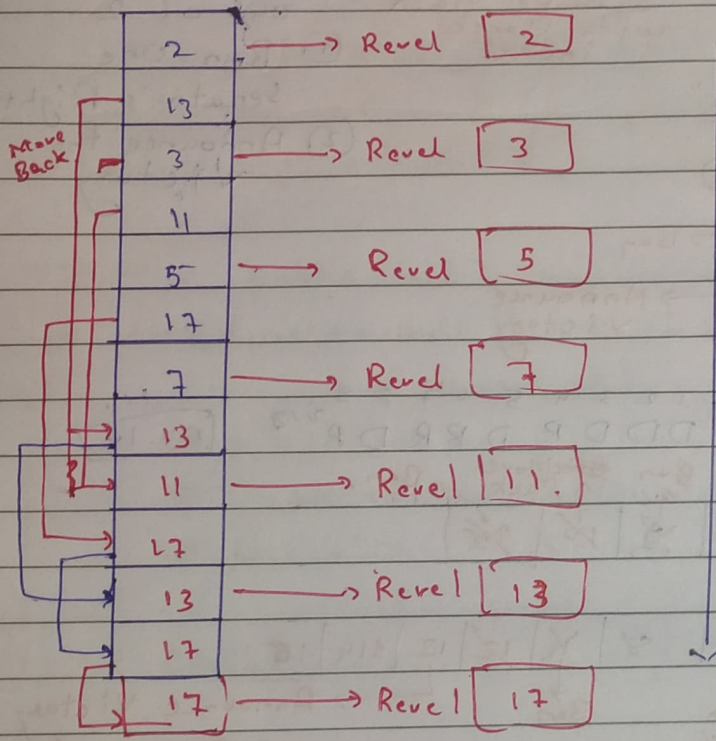 2 Revel 2
13
Move
Back
3 Revel 3
11
5 Revel 5
17
7 Revel 7
13
11 Revel 11.
17
13 Revel 13
17
17 Revel 17